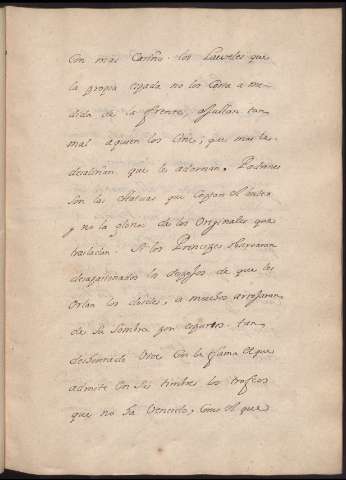 Con mas Cariño. los Laureles que
la propia espada no los Corta a me-
dida de la frente, assultan tan
mal a quien los Ciñe; que mas le
desaliñan que le adornan. Padrones
son las estatuas que Copian el
y no la gloria de los Originales que
trasladan. Si los Principes
desapasionados los de que les
Orlan los doseles, a muchos arrojaran
de su Sombra por tan
Vive Con la fama el que
admite en sus timbres los trofeos
que no ha Vencido, Como el que